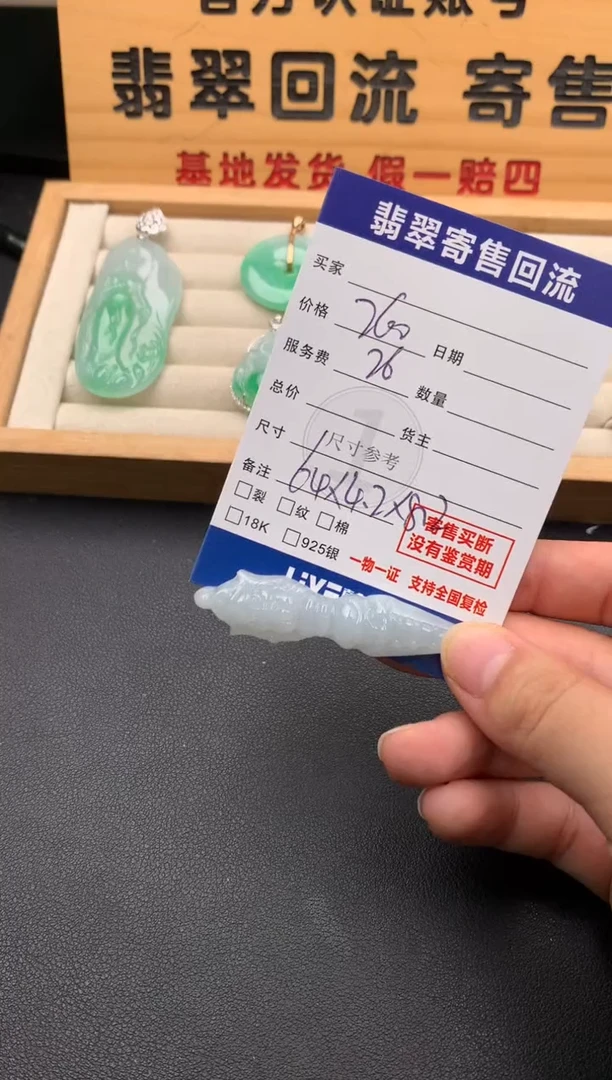 官方认证账号
翡翠回流 寄售
基地发货 假一赔四
翡翠寄售回流
买家
价格 260 日期
服务费 26 数量
总价 货主
尺寸 尺寸参考
备注
裂 纹 棉
18K 925银
寄售买断
没有鉴赏期
一物一证 支持全国复检